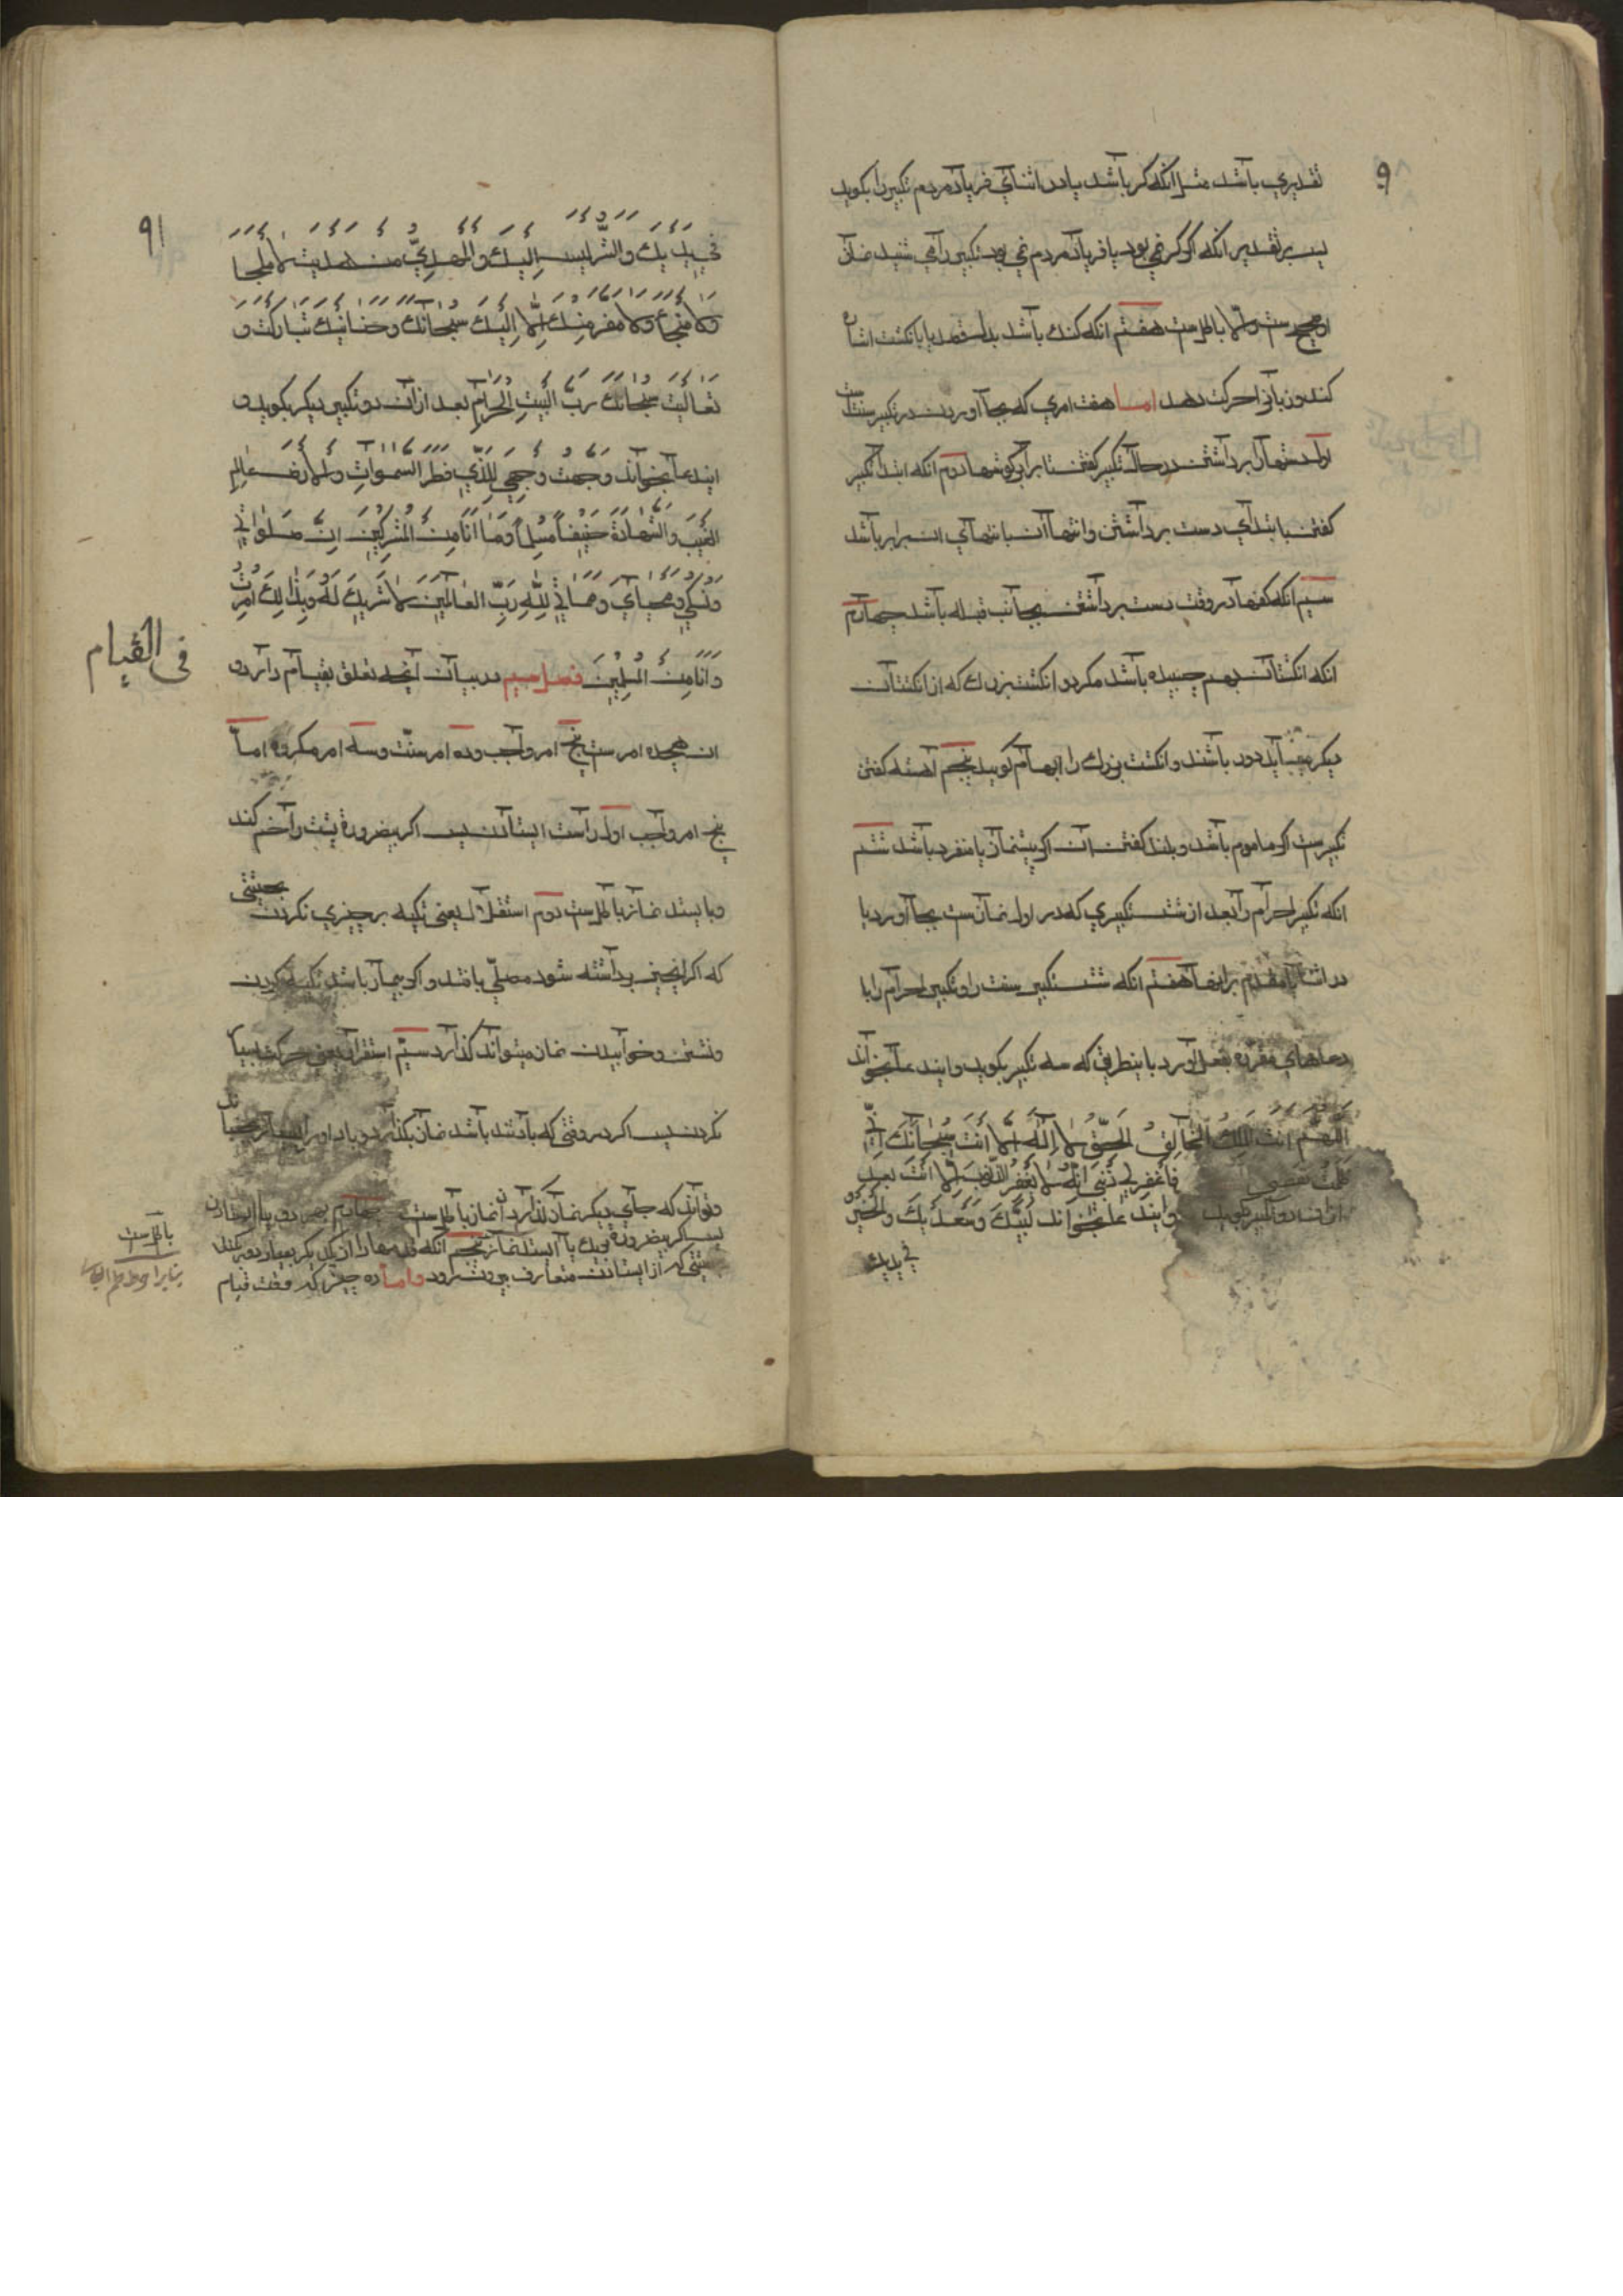 ۹
تقدیری باشد مثل انکه کر باشد یا در اثنای فریاد مردم تکبیر را بکوید
پس بر تقدیر انکه اکر کر نمی بود یا فریاد مردم نمی بود تکبیر را می شنید نماز
او صحیح ست والّا باطل ست هفتم انکه کنک باشد باید باانکشت اشاره
کند و زبانرا حرکت دهد اما هفت امری که بجا اوردن در تکبیر سنت ست
اول دستها را برداشتن در حال تکبیر کفتن تا برابر کوشها دوم انکه ابتدا تکبیر
کفتن با ابتدای دست برداشتن و انتها آن با انتهای ان برابر باشد
سیم انکه کفها در وقت دست برداشتن بجانب قبله باشد چهارم
انکه انکشتان بهم چسپیده باشد مکر دو انکشت بزرك که از انکشتان
دیکر میباید دور باشند و انکشت بزرك را ابهام کویند پنجم آهسته کفتن
تکبیرست اکر ماموم باشد و بلند کفتن ان اکر پیشنماز یا منفرد باشد ششم
انکه تکبیر احرام را بعد از شش تکبیری که در اول نماز ست بجا آورد یا
در اثنا یا مقدم برانها هفتم انکه شش تکبیر سنت را و تکبیر احرام را با
دعاهای مقرره بفعل آورد باینطریق که سه تکبیر بکوید و ایندعا بخواند
اللهم انت الملك الحق لا اله الا انت سبحانك انی
ظلمت نفسی فاغفر لی ذنبی انه لا یغفر الذنوب الا انت بعد
ازان دو تکبیر بکوید و ایندعا بخواند لبیك وسعدیك والخیر
فی یدیك
۹۱
فی یدیك والشر لیس الیك والمهدی من هدیت لا ملجا
ولا منجا ولا مفر منك الّا الیك سبحانك وحنانیك تبارکت و
تعالیت سبحانك رب البیت الحرام بعد ازان دو تکبیر دیکر بکوید و
ایندعا بخواند وجهت وجهی للذی فطر السموات والارض عالم
الغیب والشهادة حنیفا مسلما وما انا من المشرکین ان صلواتی
ونسکی ومحیای ومماتی لله رب العالمین لا شریك له وبذالك امرت
وانا من المسلمین فصل سیم در بیان آنچه تعلق بقیام دارد و
فی القیام
ان هیجده امر ست پنج امر واجب و ده امر سنّت و سه امر مکروه اما
پنج امر واجب اول راست ایستادن پس اکر بیضرورة پشت را خم کند
و بایستد نماز باطل ست دوم استقلال یعنی تکیه بر چیزی نکردن بحیثیتی
که اکر انچیز برداشته شود مصلّی بافتد و اکر بیمار باشد تکیه کردن
و نشستن و خوابیدن نماز میتواند کذارد سیّم استقرار یعنی حرکت بسیار
نکردن پس اکر در وقتی که باد تند باشد نماز بکذارد و باد او را
و تواند که جای دیکر نماز کذارد ان نماز باطل ست چهارم بهر دو پا ایستادن
پس اکر بیضرورة بیك پا ایستد نماز باطل ست پنجم انکه قدمها را از یکدیکر بسیار دور نکند
بحیثیتی که از ایستادن متعارف بیرون رود و اما ده چیز که وقت قیام